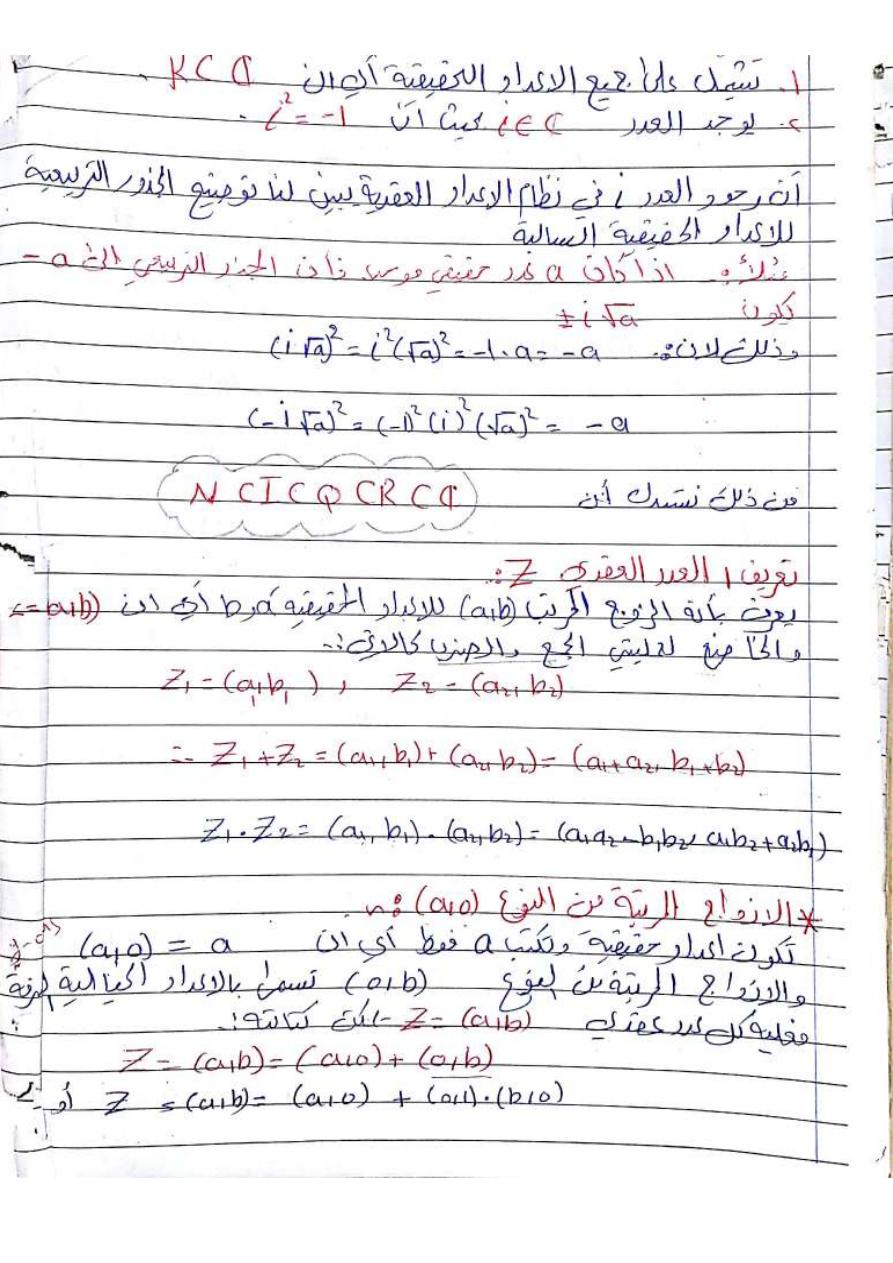 ١. تشمل على جميع الاعداد الحقيقية أي ان R ⊂ ℂ .
٢. يوجد العدد i ∈ ℂ بحيث أن i² = -1 .
أن وجود العدد i في نظام الاعداد العقدية يبين لنا توضيح الجذور التربيعية
للاعداد الحقيقية السالبة
مثلاً: اذا كان a عدد حقيقي موجب فأن الجذر التربيعي الى -a
يكون ±i√a
وذلك لان: (i√a)² = i²(√a)² = -1 . a = -a
(-i√a)² = (-1)²(i)²(√a)² = -a
من ذلك نستدل أن N ⊂ I ⊂ Q ⊂ R ⊂ ℂ
تعريف / العدد العقدي Z :
يعرف بأنه الزوج المرتب (a,b) للاعداد الحقيقية فقط أي ان z=(a,b)
والخاضع لعمليتي الجمع والضرب كالاتي:-
Z₁ = (a₁, b₁) , Z₂ = (a₂, b₂)
∴ Z₁ + Z₂ = (a₁, b₁) + (a₂, b₂) = (a₁+a₂, b₁+b₂)
Z₁ . Z₂ = (a₁, b₁) . (a₂, b₂) = (a₁a₂ - b₁b₂, a₁b₂ + a₂b₁)
* الازواج المرتبة من النوع (a,0) :
تكون اعداد حقيقية وتكتب a فقط أي ان (a,0) = a
والازواج المرتبة من النوع (0,b) تسمى بالاعداد الخيالية الصرفة
وعليه كل عدد عقدي Z = (a,b) يمكن كتابته:
Z = (a,b) = (a,0) + (0,b)
أو Z = (a,b) = (a,0) + (0,1).(b,0)